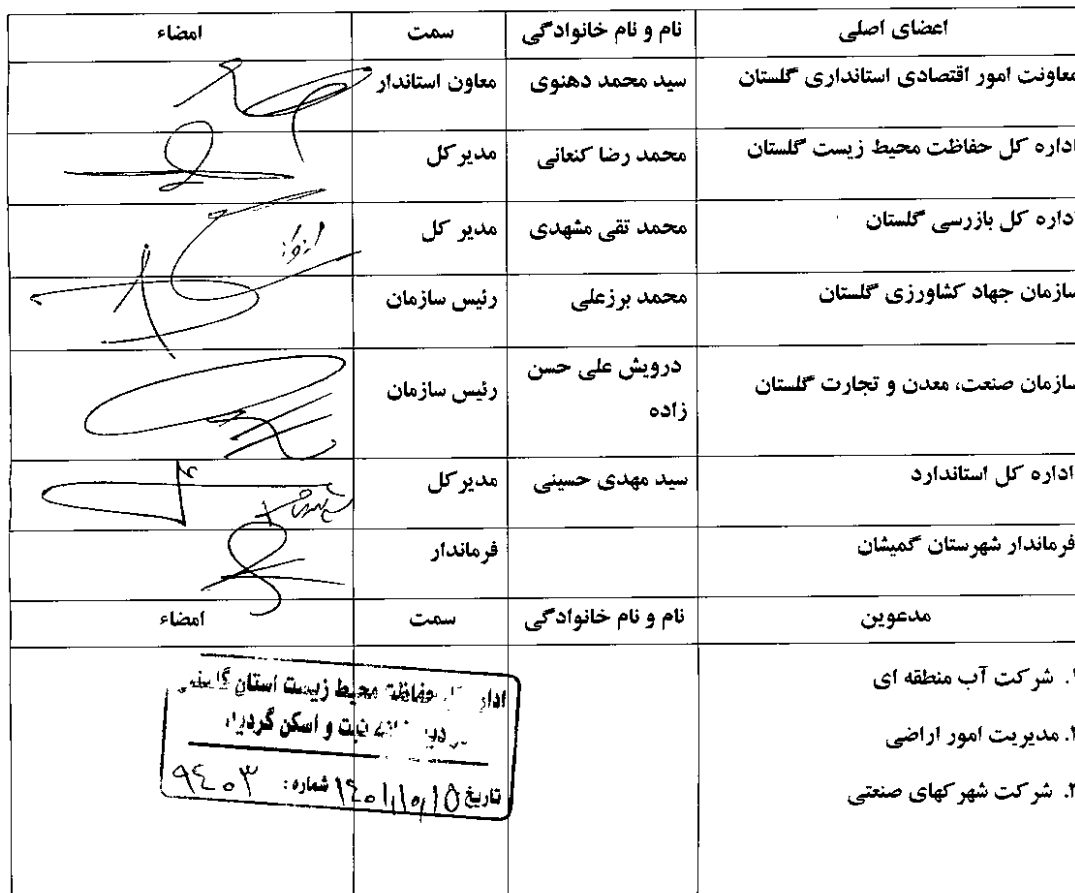 اعضای اصلی نام و نام خانوادگی سمت امضاء
معاونت امور اقتصادی استانداری گلستان سید محمد دهنوی معاون استاندار
اداره کل حفاظت محیط زیست گلستان محمد رضا کنعانی مدیر کل
اداره کل بازرسی گلستان محمد تقی مشهدی مدیر کل
سازمان جهاد کشاورزی گلستان محمد برزعلی رئیس سازمان
سازمان صنعت، معدن و تجارت گلستان درویش علی حسن رئیس سازمان
زاده
اداره کل استاندارد سید مهدی حسینی مدیر کل
فرماندار شهرستان گمیشان فرماندار
مدعوین نام و نام خانوادگی سمت امضاء
شرکت آب منطقه ای
۲. مدیریت امور اراضی
شرکت شهرکهای صنعتی
حفاظت محیط زیست استان
ثبت و اسکن گردید
تاریخ ۱۴۰۱/۱۰/۱۵ شماره: ۹۴۰۳